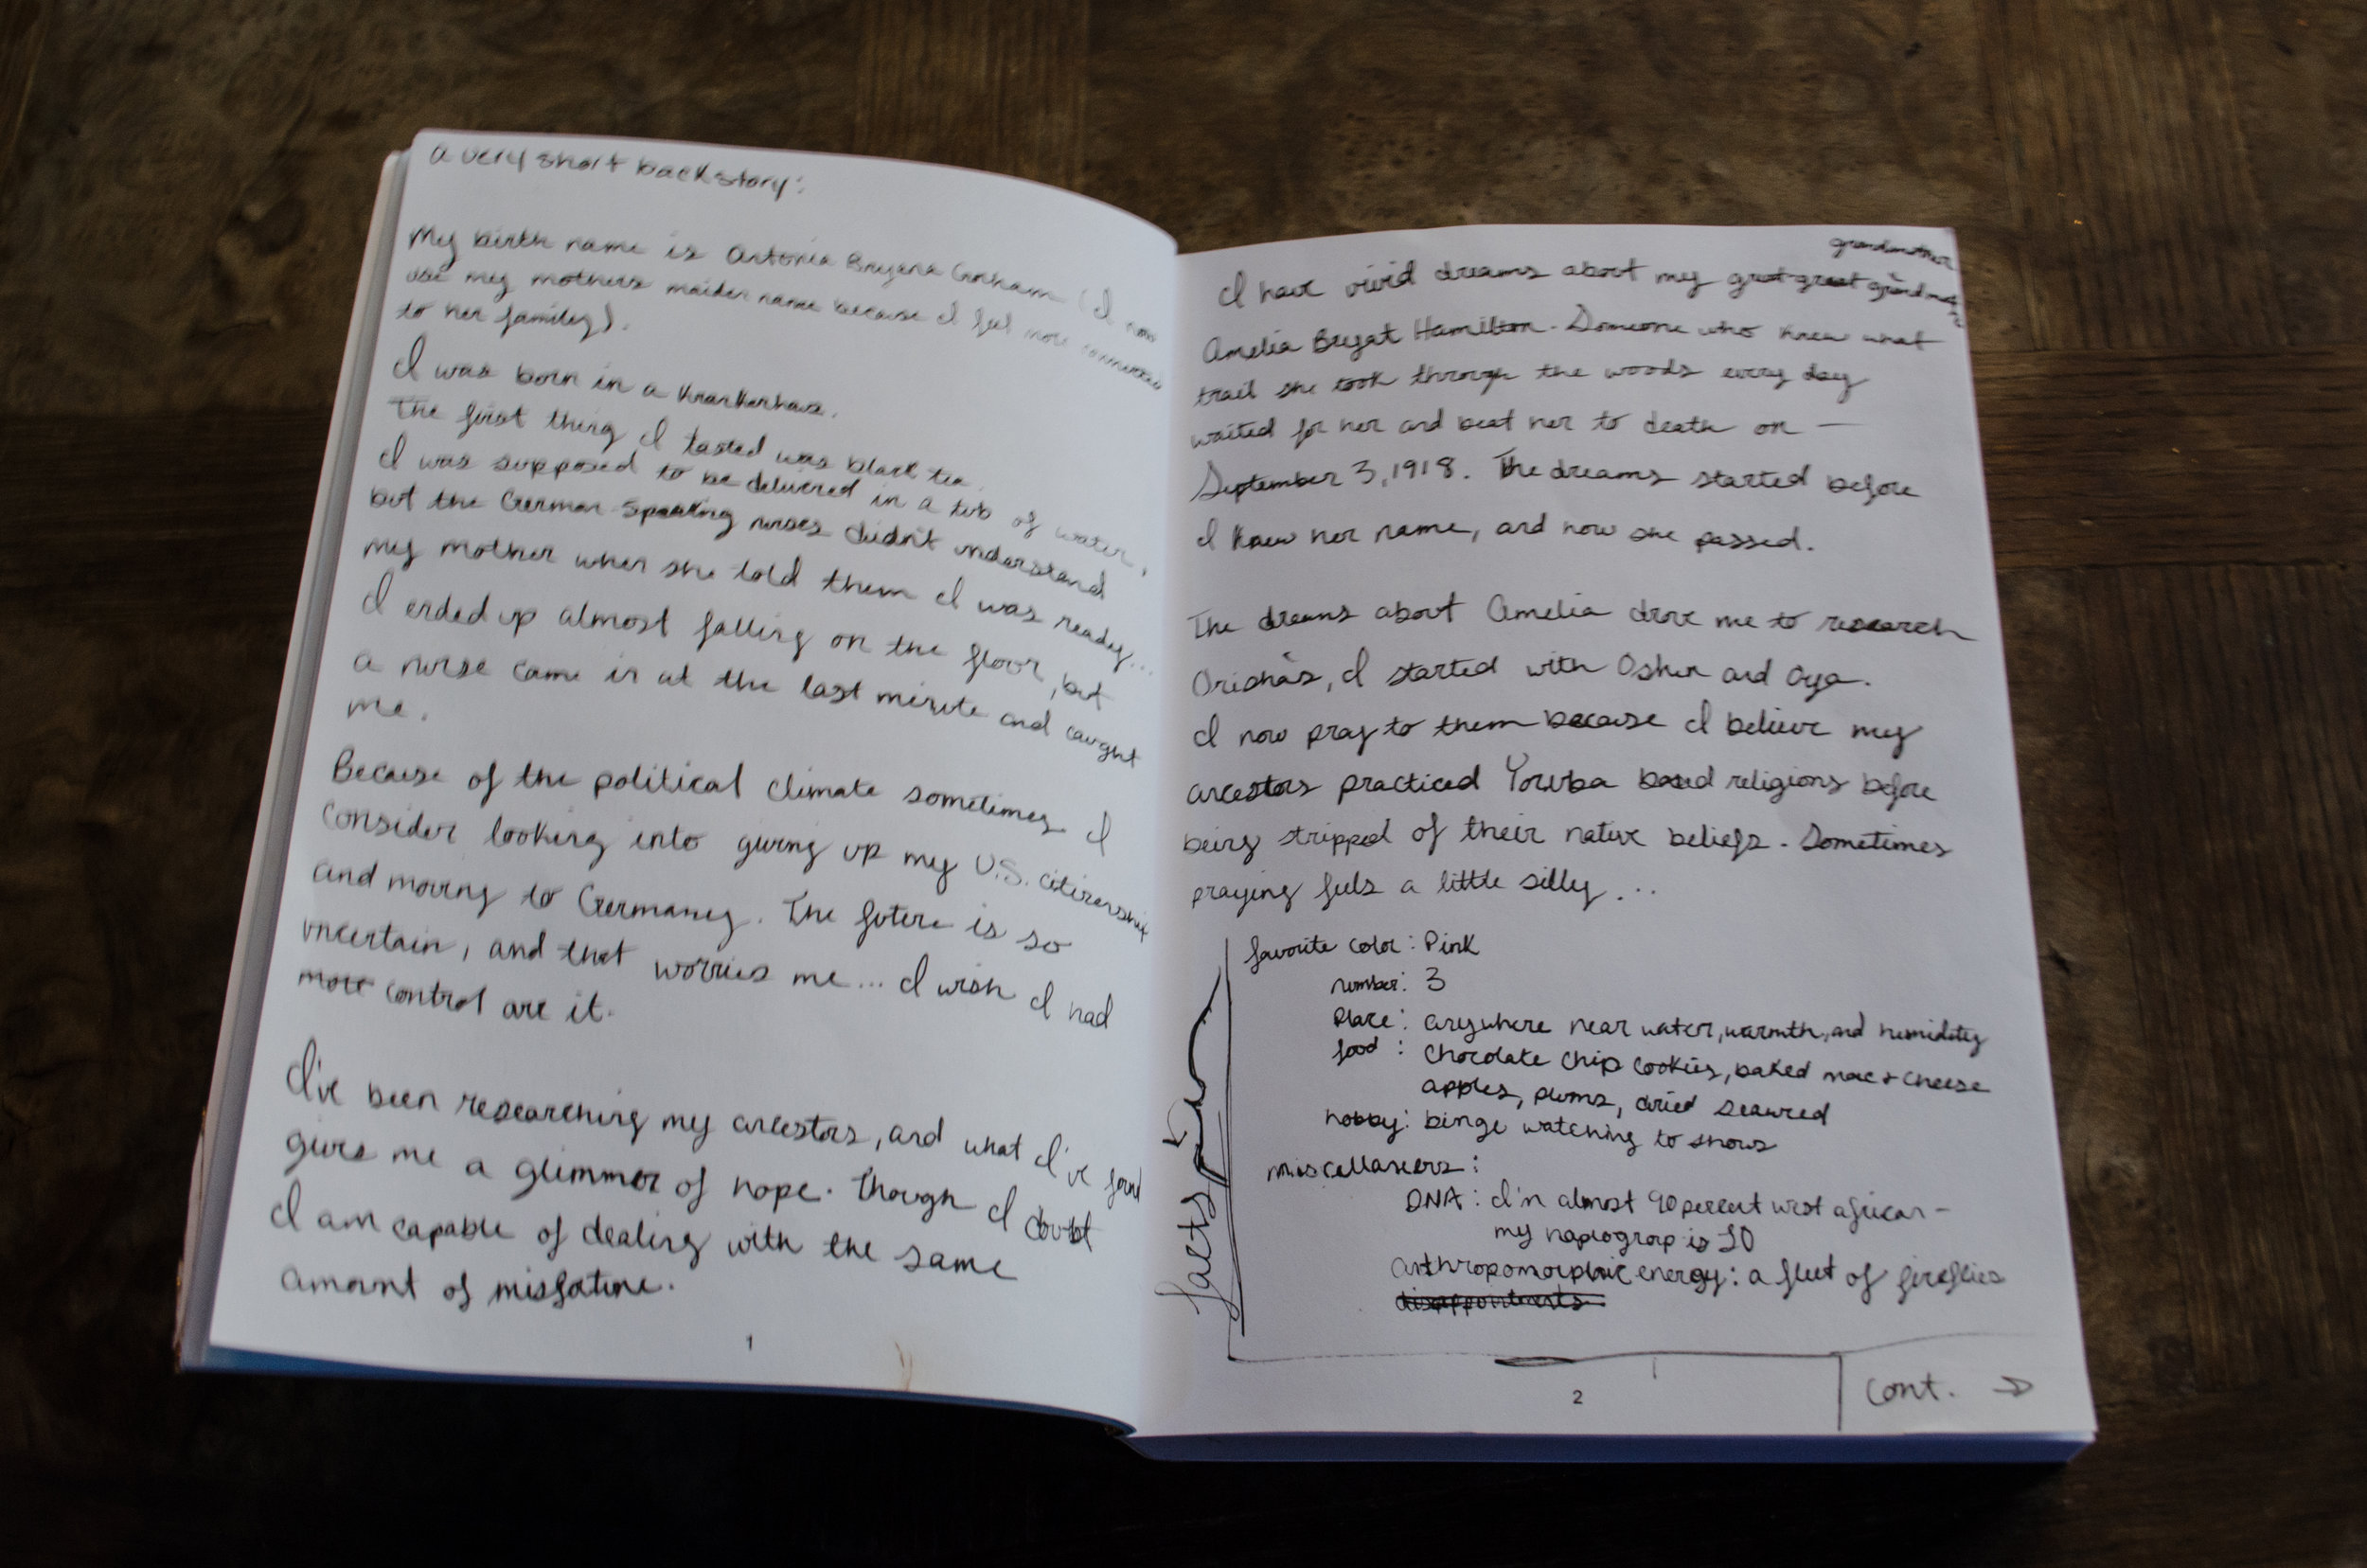 a very short backstory:
My birth name is Antonia Bryana Gorham (I now
use my mothers maiden name because I feel more connected
to her family).
I was born in a Krankenhaus.
The first thing I tasted was black tea.
I was supposed to be delivered in a tub of water,
but the German-speaking nurses didn't understand
my mother when she told them I was ready...
I ended up almost falling on the floor, but
a nurse came in at the last minute and caught
me.
Because of the political climate sometimes I
consider looking into giving up my U.S. citizenship
and moving to Germany. The future is so
uncertain, and that worries me... I wish I had
more control over it.
I've been researching my ancestors, and what I've found
gives me a glimmer of hope. Though I doubt
I am capable of dealing with the same
amount of misfortune.
1
grandmother
I have vivid dreams about my great-great
Amelia Bryat Hamilton. Someone who knew what
trail she took through the woods every day
waited for her and beat her to death on —
September 3, 1918. The dreams started before
I knew her name, and how she passed.
The dreams about Amelia drove me to research
Orisha's, I started with Oshun and Oya.
I now pray to them because I believe my
ancestors practiced Yoruba based religions before
being stripped of their native beliefs. Sometimes
praying feels a little silly...
facts
favorite color: Pink
number: 3
place: anywhere near water, warmth, and humidity
food: chocolate chip cookies, baked mac + cheese
apples, plums, dried seaweed
hobby: binge watching tv shows
miscellaneous:
DNA: I'm almost 90 percent west african –
my haplogroup is L0
anthropomorphic energy: a fleet of fireflies
disappointments
2
cont. →